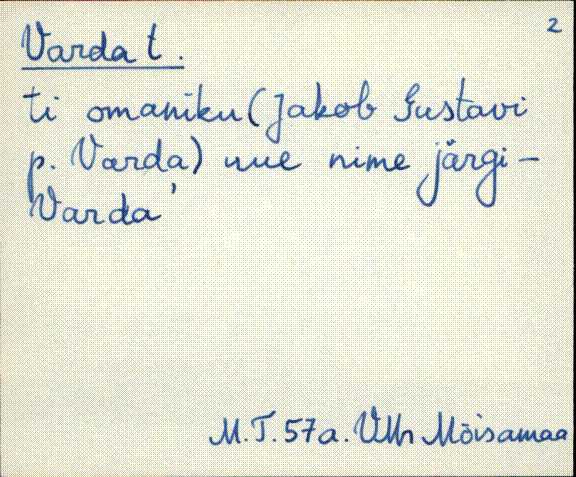 2
Varda t.
ti omaniku (Jakob Gustavi
p. Varda) uue nime järgi –
Varda'
M.T. 57a. VMr Mõisamaa